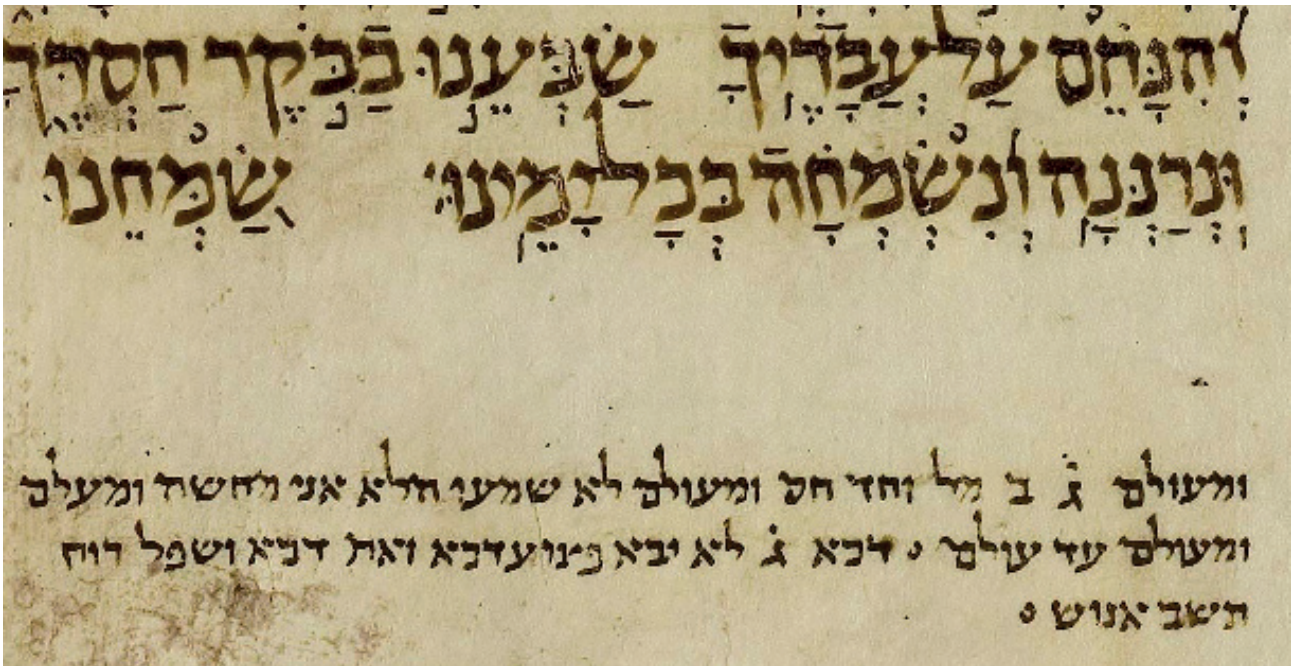 וְהִנָּחֵם עַל־עֲבָדֶיךָ שַׂבְּעֵנוּ בַבֹּקֶר חַסְדֶּךָ
וּנְרַנְּנָה וְנִשְׂמְחָה בְּכָל־יָמֵינוּ׃ שַׂמְּחֵנוּ
ומעולם ג̇ ב מל וחד חס ומעולם לא שמעו הלא אני מחשה ומעלם
ומעולם עד עולם ◦ דכא ג̇ לא יבא פצוע דכא ואת דכא ושפל רוח
תשב אנוש ◦